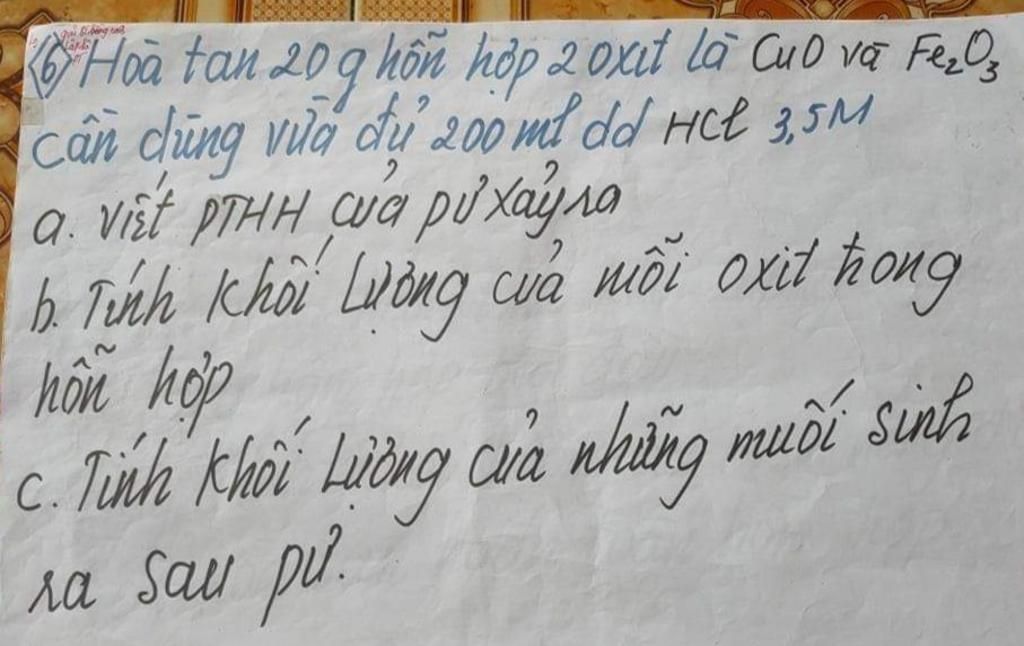 6 Hoà tan 20g hỗn hợp 2 oxit là CuO và Fe₂O₃
cần dùng vừa đủ 200ml dd HCl 3,5M
a. Viết PTHH của pư xảy ra
b. Tính khối lượng của mỗi oxit trong
hỗn hợp
c. Tính khối lượng của những muối sinh
ra sau pư.